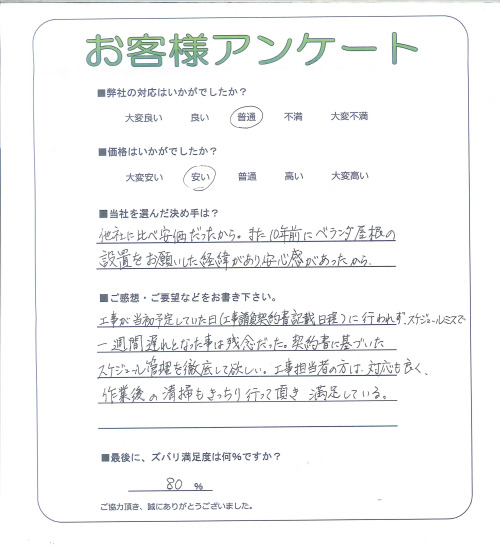 お客様アンケート
■弊社の対応はいかがでしたか？
大変良い 良い 普通 不満 大変不満
■価格はいかがでしたか？
大変安い 安い 普通 高い 大変高い
■当社を選んだ決め手は？
他社に比べ安価だったから。また10年前にベランダ屋根の
設置をお願いした経緯があり安心感があったから。
■ご感想・ご要望などをお書き下さい。
工事が当初予定していた日(工事請負契約書記載日程)に行われず、スケジュールミスで
一週間遅れとなった事は残念だった。契約書に基づいた
スケジュール管理を徹底して欲しい。工事担当者の方は、対応も良く、
作業後の清掃もきっちり行って頂き満足している。
■最後に、ズバリ満足度は何％ですか？
80 %
ご協力頂き、誠にありがとうございました。